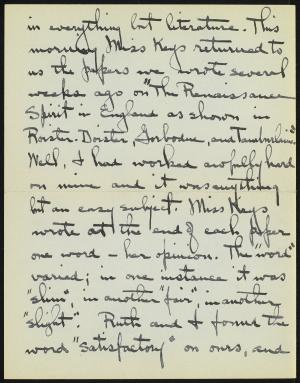 in everything but literature. This
morning Miss Keys returned to
us the papers we wrote several
weeks ago on "The Renaissance
Spirit in England as shown in
Roister Doister, Gorboduc, and Tamburlaine."
Well, I had worked awfully hard
on mine and it was anything
but an easy subject. Miss Keys
wrote at the end of each paper
one word - her opinion. The "word"
varied; in one instance it was
"slim", in another "fair", in another
"slight". Ruth and I found the
word "satisfactory" on ours, and